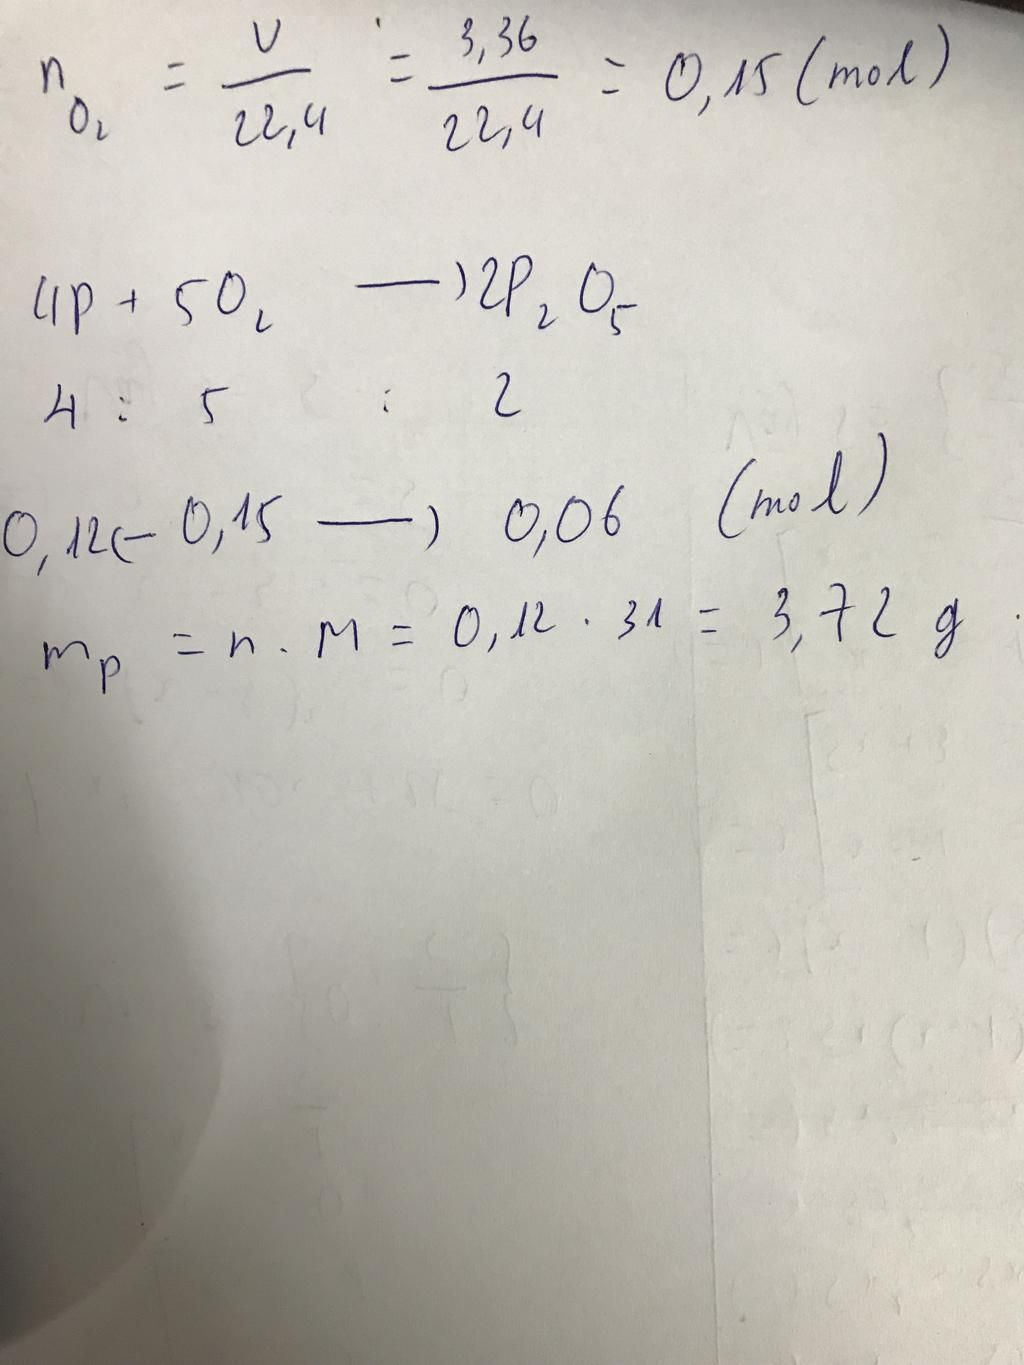 n_{O_2} = \frac{V}{22,4} = \frac{3,36}{22,4} = 0,15 (mol)
4P + 5O_2 → 2P_2O_5
4 : 5 : 2
0,12 ← 0,15 → 0,06 (mol)
m_P = n . M = 0,12 . 31 = 3,72 g